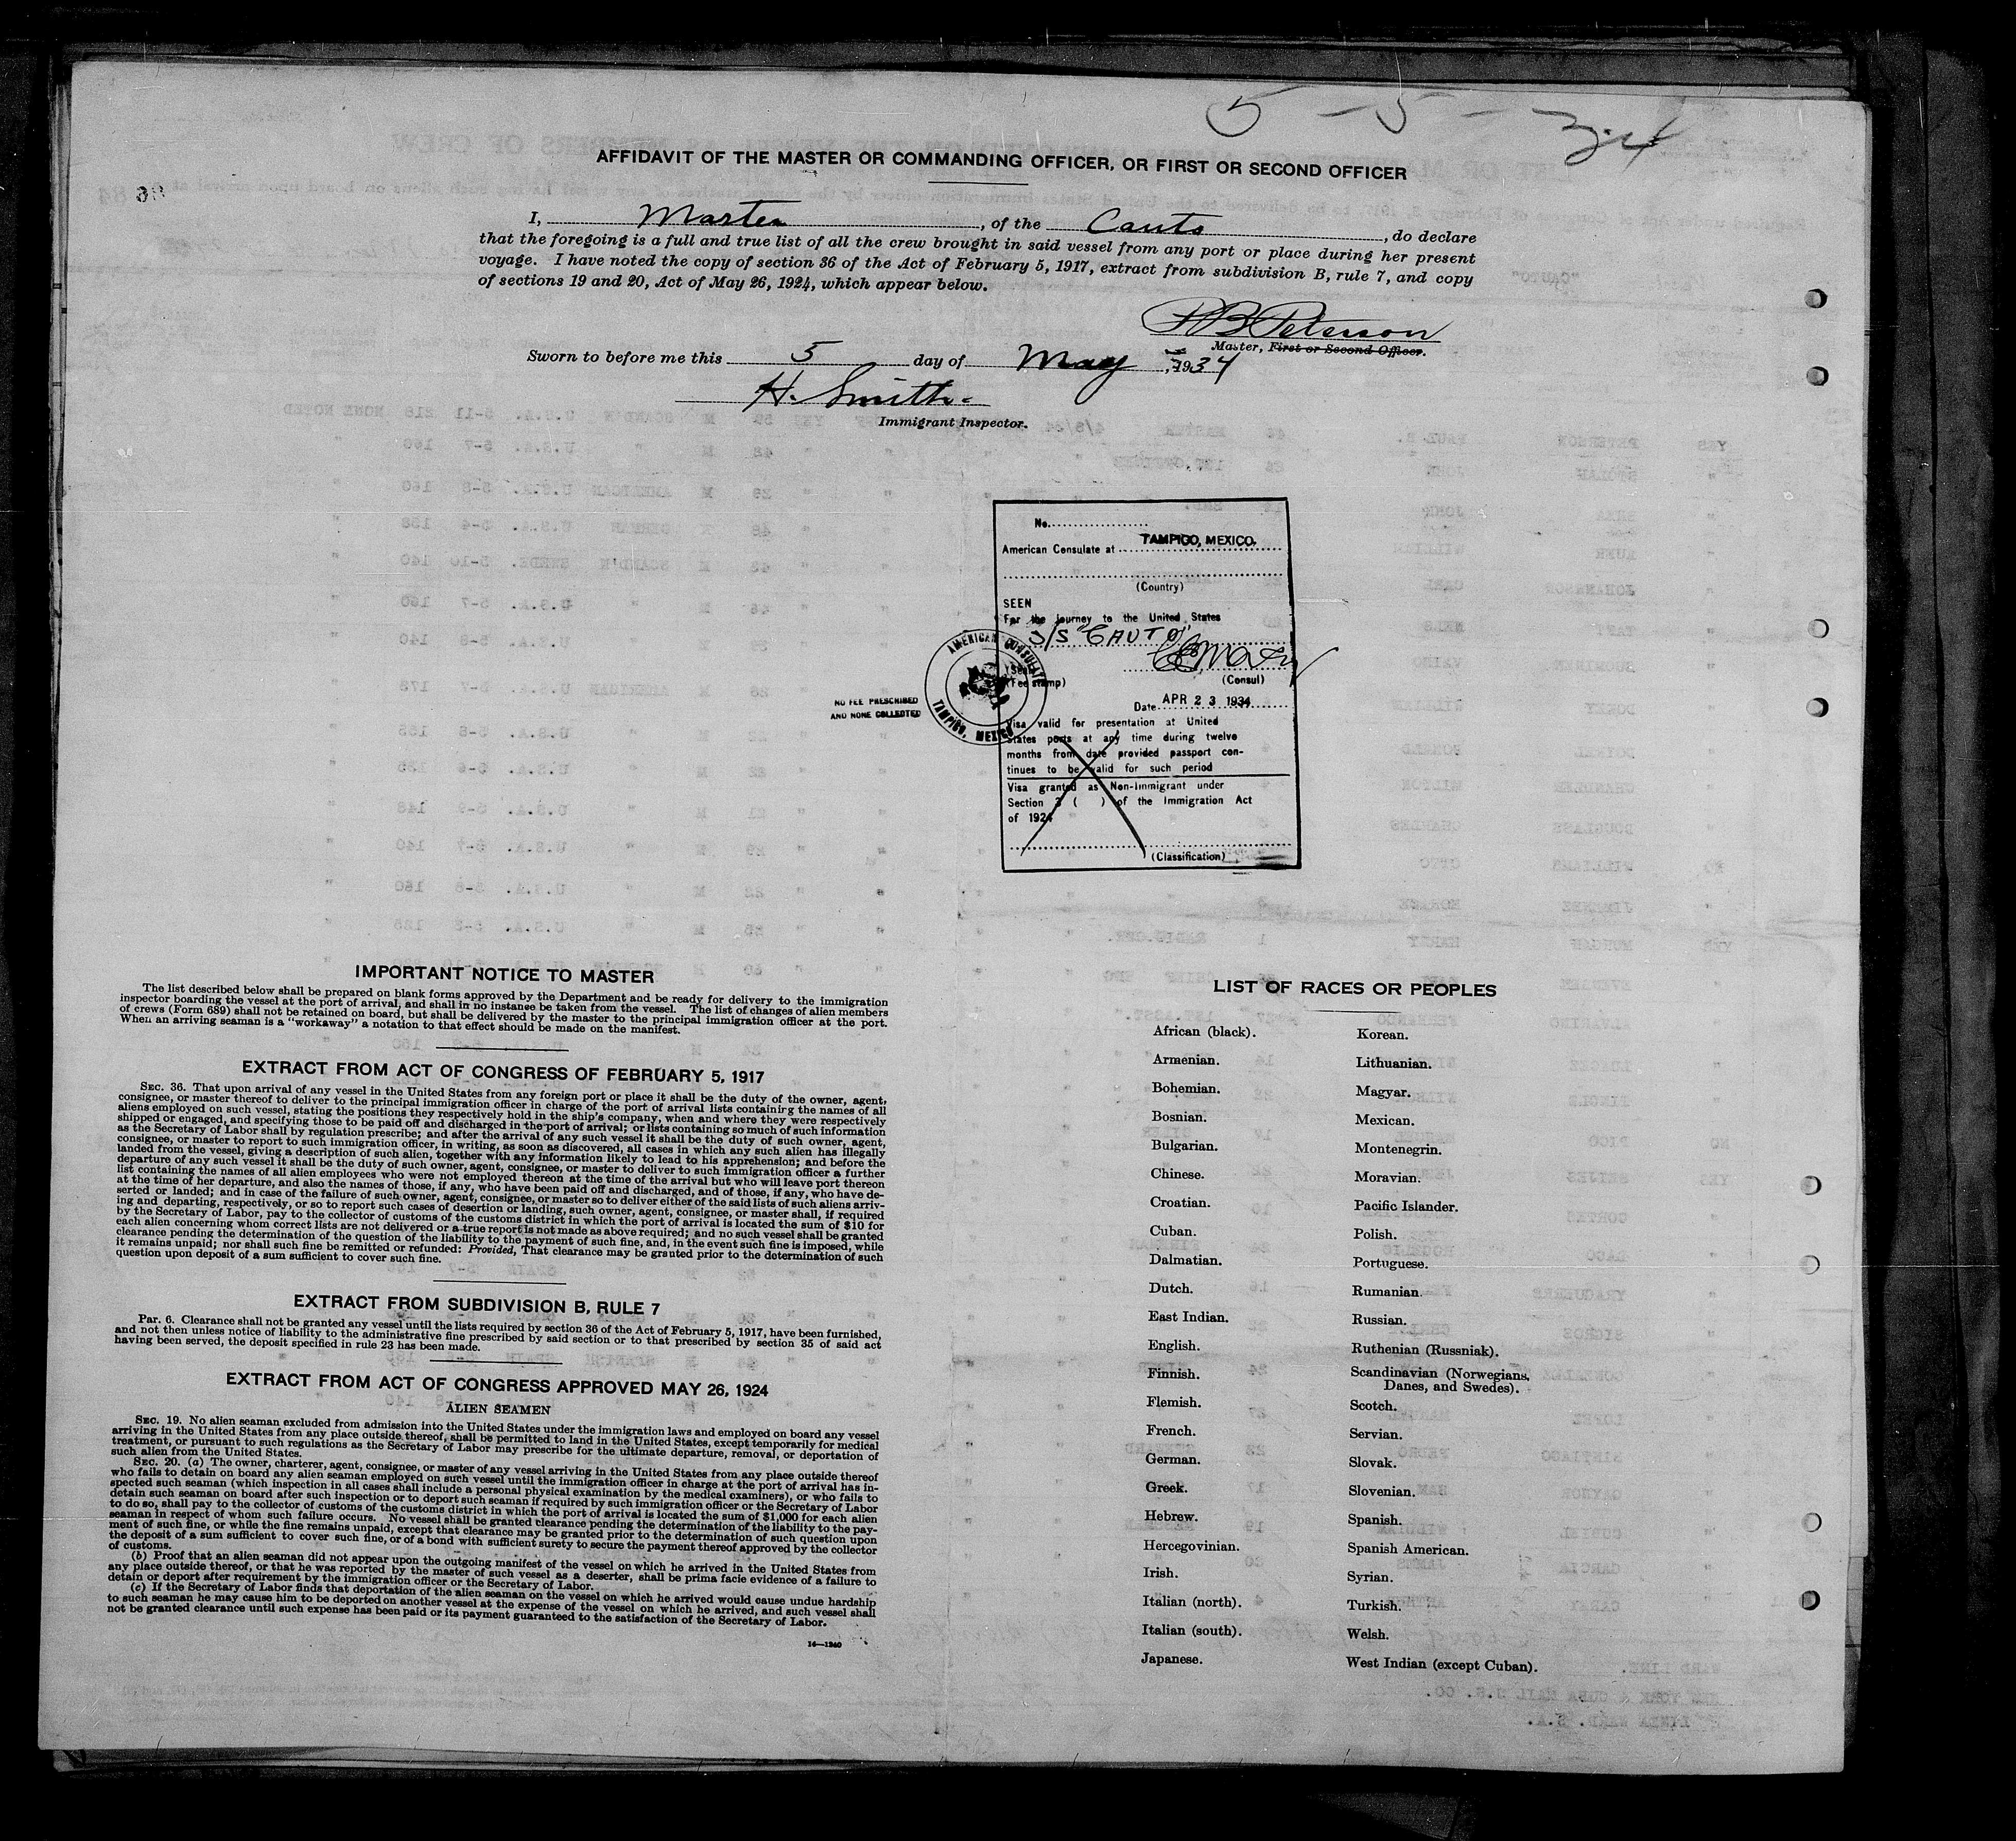 5 - 5 - 34
AFFIDAVIT OF THE MASTER OR COMMANDING OFFICER, OR FIRST OR SECOND OFFICER
I, Master, of the Cauto, do declare
that the foregoing is a full and true list of all the crew brought in said vessel from any port or place during her present
voyage. I have noted the copy of section 36 of the Act of February 5, 1917, extract from subdivision B, rule 7, and copy
of sections 19 and 20, Act of May 26, 1924, which appear below.
P B Peterson
Master, First or Second Officer.
Sworn to before me this 5 day of May, 1934
H. Smith
Immigrant Inspector.
No.
American Consulate at TAMPICO, MEXICO.
(Country)
SEEN
For the journey to the United States
S/S "CAUTO"
(Seal)
(Fee stamp)
(Consul)
Date APR 23 1934
Visa valid for presentation at United
States ports at any time during twelve
months from date provided passport con-
tinues to be valid for such period
Visa granted as Non-Immigrant under
Section 3 ( ) of the Immigration Act
of 1924
(Classification)
AMERICAN CONSULATE
TAMPICO, MEXICO
NO FEE PRESCRIBED
AND NONE COLLECTED
IMPORTANT NOTICE TO MASTER
The list described below shall be prepared on blank forms approved by the Department and be ready for delivery to the immigration
inspector boarding the vessel at the port of arrival, and shall in no instance be taken from the vessel. The list of changes of alien members
of crews (Form 689) shall not be retained on board, but shall be delivered by the master to the principal immigration officer at the port.
When an arriving seaman is a "workaway" a notation to that effect should be made on the manifest.
EXTRACT FROM ACT OF CONGRESS OF FEBRUARY 5, 1917
SEC. 36. That upon arrival of any vessel in the United States from any foreign port or place it shall be the duty of the owner, agent,
consignee, or master thereof to deliver to the principal immigration officer in charge of the port of arrival lists containing the names of all
aliens employed on such vessel, stating the positions they respectively hold in the ship's company, when and where they were respectively
shipped or engaged, and specifying those to be paid off and discharged in the port of arrival; or lists containing so much of such information
as the Secretary of Labor shall by regulation prescribe; and after the arrival of any such vessel it shall be the duty of such owner, agent,
consignee, or master to report to such immigration officer, in writing, as soon as discovered, all cases in which any such alien has illegally
landed from the vessel, giving a description of such alien, together with any information likely to lead to his apprehension; and before the
departure of any such vessel it shall be the duty of such owner, agent, consignee, or master to deliver to such immigration officer a further
list containing the names of all alien employees who were not employed thereon at the time of the arrival but who will leave port thereon
at the time of her departure, and also the names of those, if any, who have been paid off and discharged, and of those, if any, who have de-
serted or landed; and in case of the failure of such owner, agent, consignee, or master so to deliver either of the said lists of such aliens arriv-
ing and departing, respectively, or so to report such cases of desertion or landing, such owner, agent, consignee, or master shall, if required
by the Secretary of Labor, pay to the collector of customs of the customs district in which the port of arrival is located the sum of $10 for
each alien concerning whom correct lists are not delivered or a true report is not made as above required; and no such vessel shall be granted
clearance pending the determination of the question of the liability to the payment of such fine, and, in the event such fine is imposed, while
it remains unpaid; nor shall such fine be remitted or refunded: Provided, That clearance may be granted prior to the determination of such
question upon deposit of a sum sufficient to cover such fine.
EXTRACT FROM SUBDIVISION B, RULE 7
Par. 6. Clearance shall not be granted any vessel until the lists required by section 36 of the Act of February 5, 1917, have been furnished,
and not then unless notice of liability to the administrative fine prescribed by said section or to that prescribed by section 35 of said act
having been served, the deposit specified in rule 23 has been made.
EXTRACT FROM ACT OF CONGRESS APPROVED MAY 26, 1924
ALIEN SEAMEN
SEC. 19. No alien seaman excluded from admission into the United States under the immigration laws and employed on board any vessel
arriving in the United States from any place outside thereof, shall be permitted to land in the United States, except temporarily for medical
treatment, or pursuant to such regulations as the Secretary of Labor may prescribe for the ultimate departure, removal, or deportation of
such alien from the United States.
SEC. 20. (a) The owner, charterer, agent, consignee, or master of any vessel arriving in the United States from any place outside thereof
who fails to detain on board any alien seaman employed on such vessel until the immigration officer in charge at the port of arrival has in-
spected such seaman (which inspection in all cases shall include a personal physical examination by the medical examiners), or who fails to
detain such seaman on board after such inspection or to deport such seaman if required by such immigration officer or the Secretary of Labor
to do so, shall pay to the collector of customs of the customs district in which the port of arrival is located the sum of $1,000 for each alien
seaman in respect of whom such failure occurs. No vessel shall be granted clearance pending the determination of the liability to the pay-
ment of such fine, or while the fine remains unpaid, except that clearance may be granted prior to the determination of such question upon
the deposit of a sum sufficient to cover such fine, or of a bond with sufficient surety to secure the payment thereof approved by the collector
of customs.
(b) Proof that an alien seaman did not appear upon the outgoing manifest of the vessel on which he arrived in the United States from
any place outside thereof, or that he was reported by the master of such vessel as a deserter, shall be prima facie evidence of a failure to
detain or deport after requirement by the immigration officer or the Secretary of Labor.
(c) If the Secretary of Labor finds that deportation of the alien seaman on the vessel on which he arrived would cause undue hardship
to such seaman he may cause him to be deported on another vessel at the expense of the vessel on which he arrived, and such vessel shall
not be granted clearance until such expense has been paid or its payment guaranteed to the satisfaction of the Secretary of Labor.
14—1240
LIST OF RACES OR PEOPLES
African (black).
Armenian.
Bohemian.
Bosnian.
Bulgarian.
Chinese.
Croatian.
Cuban.
Dalmatian.
Dutch.
East Indian.
English.
Finnish.
Flemish.
French.
German.
Greek.
Hebrew.
Hercegovinian.
Irish.
Italian (north).
Italian (south).
Japanese.
Korean.
Lithuanian.
Magyar.
Mexican.
Montenegrin.
Moravian.
Pacific Islander.
Polish.
Portuguese.
Rumanian.
Russian.
Ruthenian (Russniak).
Scandinavian (Norwegians,
Danes, and Swedes).
Scotch.
Servian.
Slovak.
Slovenian.
Spanish.
Spanish American.
Syrian.
Turkish.
Welsh.
West Indian (except Cuban).